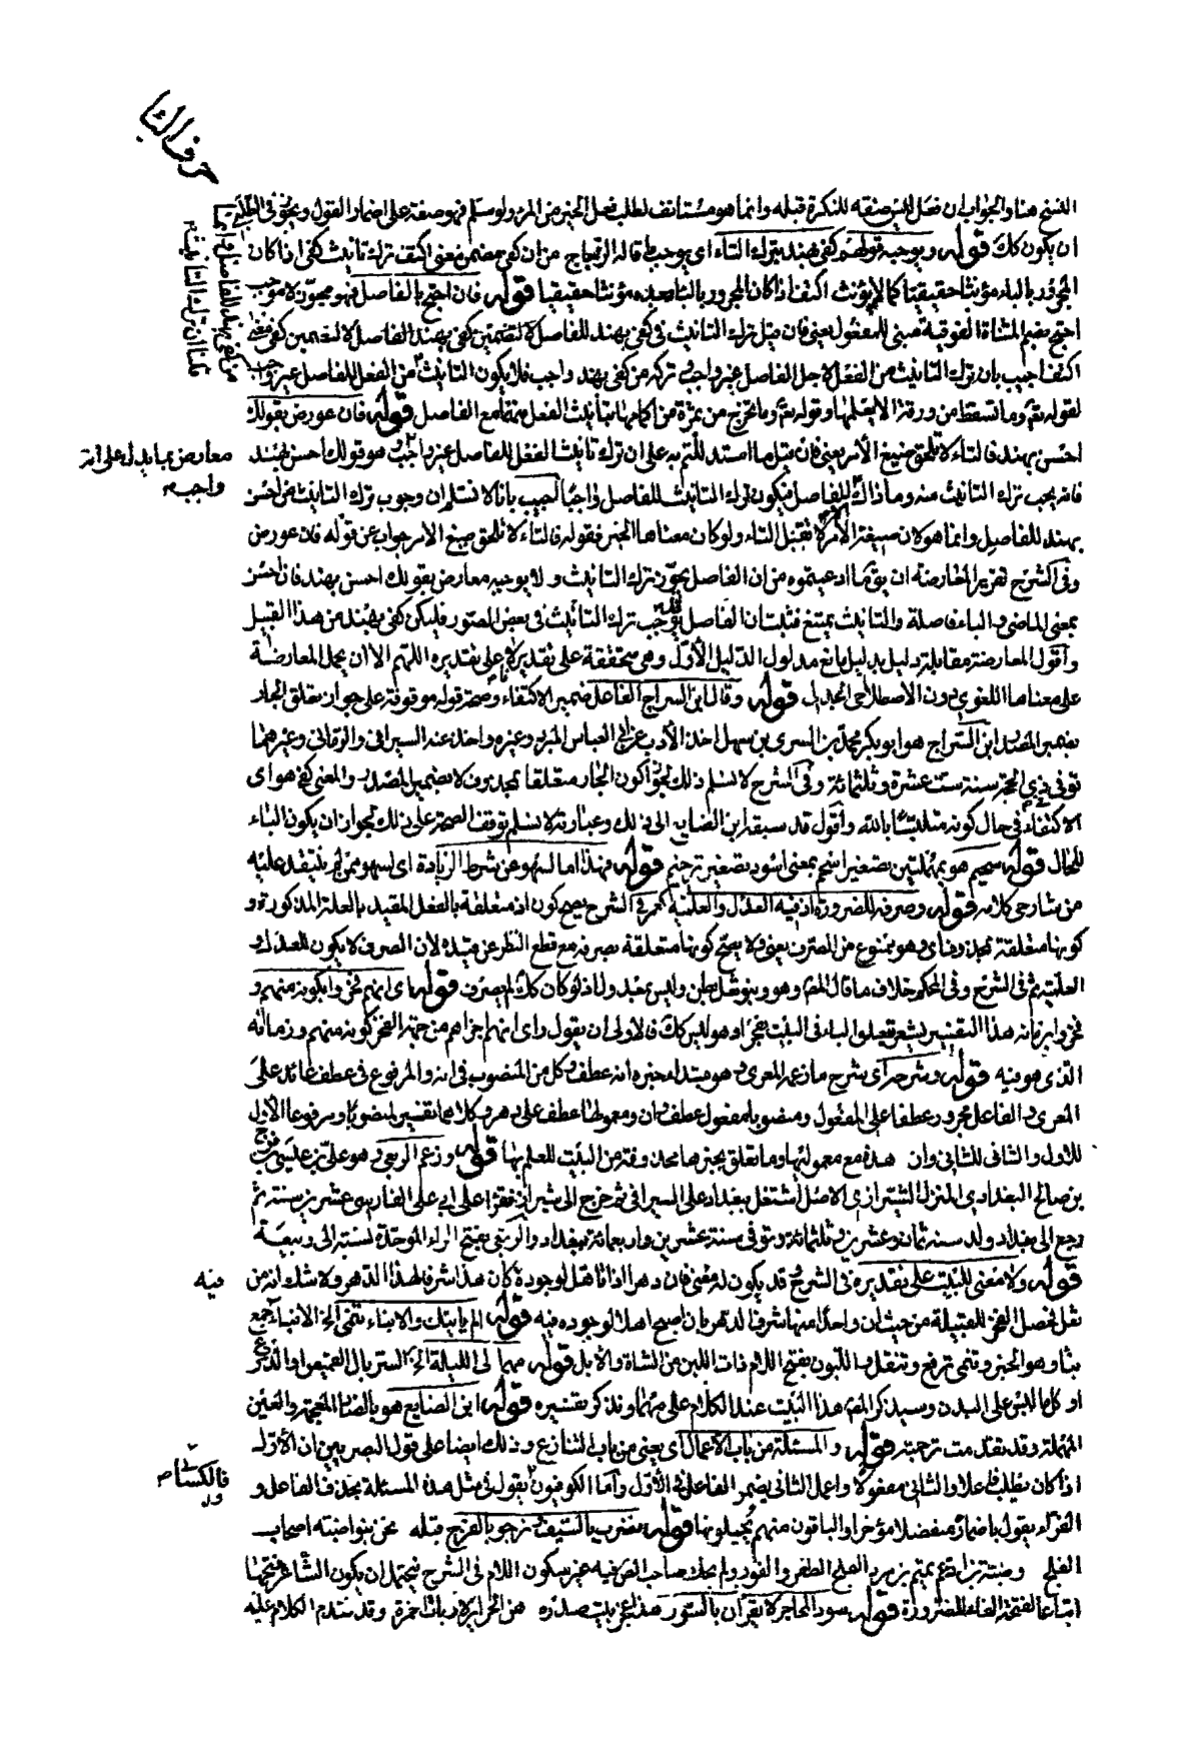 حرف الباء
النسخ هنا والجواب ان فعل ليس صفة للنكرة قبله وانما هو مستانف لطلب فعل الخير من المرء ولو سلم فهو صفة على اضمار القول ويجوز في الطلب
ان يكون كذلك قوله ويوجبه قولهم كفى بهند بترك التاء اى يوجب ما قاله الزجاج من ان كفى مضمن معنى اكتف ترك تانيث كفى اذا كان
المجرور بالباء مؤنثا حقيقيا كما لا يؤنث اكتف اذا كان المجرور بالباء بعده مؤنثا حقيقيا قوله فان احتج بالفاصل فهو مجوز لا موجب
احتج بضم المثناة الفوقية مبني للمفعول يعني فان قيل ترك التانيث في كفى بهند للفاصل لا لتضمين كفى معنى
اكتف اجيب بان ترك التانيث من الفعل لاجل الفاصل غير واجب وتركه من كفى بهند واجب فلا يكون التانيث من الفعل للفاصل غير واجب
لقوله تعالى وما تسقط من ورقة الا يعلمها وقوله تعالى وما تخرج من ثمرة من اكمامها بتانيث الفعل فيهما مع الفاصل قوله فان عورض بقولك
احسن بهند فالتاء لا تلحق صيغ الأمر يعني فان قيل ما استدللتم به على ان ترك تانيث الفعل للفاصل غير واجب وهو قولك احسن بهند
معارض بما يدل على انه
واجب
فانه يجب ترك التانيث منه وما ذاك الا للفاصل فيكون ترك التانيث للفاصل واجبا اجيب بانا لا نسلم ان وجوب ترك التانيث في احسن
بهند للفاصل وانما هو لان صيغة الأمر لا تقبل التاء ولو كان معناها الخبر فقوله فالتاء لا تلحق صيغ الامر جواب عن قوله فان عورض
وفى الشرح تقرير المعارضة ان يقال ما ادعيتموه من ان الفاصل يجوز ترك التانيث ولا يوجبه معارض بقولك احسن بهند فان احسن
بمعنى الماضى والباء فاصلة والتانيث ممتنع فثبت ان الفاصل قد يوجب ترك التانيث في بعض الصور فليكن كفى بهند من هذا القبيل
واقول المعارضة مقابلة دليل بدليل مانع مدلول الدليل الأول وهى متحققة على تقديرنا لا على تقديره اللهم الا ان يحمل المعارضة
على معناها اللغوى دون الاصطلاحى الجدلى قوله وقال ابن السراج الفاعل ضمير الاكتفاء وصحة قوله موقوفة على جواز تعلق الجار
بضمير المصدر ابن السراج هو ابو بكر محمد بن السرى بن سهل اخذ الأدب عن ابى العباس المبرد وغيره واخذ عنه السيرافى والرمانى وغيرهما
توفى في ذى الحجة سنة ست عشرة وثلثمائة وفى الشرح لا نسلم ذلك لجواز كون الجار متعلقا بمحذوف لا بضمير المصدر والمعنى كفى هو اى
الاكتفاء في حال كونه متلبسا بالله واقول قد سبقه ابن الصايغ الى ذلك وعبارته لا نسلم توقف الصحة على ذلك لجواز ان يكون الباء
للحال قوله سحيم هو بمهملتين تصغير اسحم بمعنى اسود تصغير ترخيم قوله فهذا اما لسهو عن شرط الزيادة اى لسهو ممن لم ينتقد عليه
من شارحى كلامه قوله وصرفه للضرورة اذ فيه العدل والعلمية كعمر في الشرح يصح كون اذ متعلقة بالفعل المقيد بالعلة المذكورة و
كونها متعلقة بمحذوف اى وهو ممنوع من الصرف يعنى ولا يصح كونها متعلقة بصرفه مع قطع النظر عن قيده لان الصرف لا يكون للعدل و
العلمية ثم في الشرح وفى المحكم خلاف ما قال المص وهو وبنو ثعل بطن وليس بمعدول اذ لو كان كذلك لم يصرف قوله اى انهم فخروا بكونه منهم و
فخروا بزمانه هذا التفسير يشعر بتعلق الباء في البيت بفخرا وهو ليس كذلك فالاولى ان يقول اى انهم اجزاهم من جهة الفخر كونه منهم وزمانه
الذى هو فيه قوله وشرحه اى شرح ما زعمه المعرى وهو مبتدا خبره انه عطف وكل من المنصوب في انه والمرفوع في عطف عائد على
المعرى والفاعل مجرور عطفا على المفعول ومنصوبا مفعول عطف وان ومعمولها عطف على دهر وكلاهما تفسير لمنصوبا ومرفوعا الاول
للاول والثانى للثانى وان هذه مع معموليها وما تعلق بخبرها محذوفة من البيت للعلم بها قوله وزعم الربعى وهو على بن عيسى بن فرج
بن صالح البغدادى المنزل الشيرازى الاصل اشتغل ببغداد على السيرافى ثم خرج الى شيراز فقرا على ابى على الفارسى عشرين سنة ثم
رجع الى بغداد ولد سنة ثمان وعشرين وثلثمائة وتوفى سنة عشرين واربعمائة ببغداد والربعى بفتح الراء الموحدة نسبة الى ربيعة
قوله ولا معنى للبيت على تقديره في الشرح قد يكون له معنى فان دهرا اذا تاهل لوجوده كان هذا شرفا لهذا الدهر ولا شك انه من
فيه
ثعل فحصل الفخر للقبيلة من حيث ان واحدا منها شرف الدهر بان اصبح اهلا لوجوده فيه قوله الم ياتيك والانباء تنمى الخ الانباء جمع
نبأ وهو الخبر وتنمى ترفع وتنقل واللبون بفتح اللام ذات اللبن من الشاة والابل قوله مهما لى الليلة الخ السربال القميص او الدرع
او كل ما لبس على البدن وسيذكر المص هذا البيت عند الكلام على مهما ونذكر تفسيره قوله ابن الصايع هو بالضاد المعجمة والعين
المهملة وقد تقدمت ترجمته قوله والمسئلة من باب الاعمال اى يعنى من باب التنازع وذلك ايضا على قول البصريين ان الأول
اذا كان يطلب فاعلا والثانى مفعولا واعمل الثانى يضمر الفاعل في الأول واما الكوفيون يقول في مثل هذه المسئلة بحذف الفاعل و
فالكسائى
الفراء يقول باضماره منفصلا مؤخرا والباقون منهم يحيلونها قوله نضرب بالسيف ونرجو بالفرج قبله نحن بنو ضبة اصحاب
الفلج وضبة بن اد عم تميم بن مر والفلج الظفر والفوز ولم يحك صاحب الصحاح فيه غير سكون اللام في الشرح فيحتمل ان يكون الشاعر فتحها
اتباعا لفتحة الفاء للضرورة قوله سود المحاجر لا يقرأن بالسور هذا عجز بيت صدره هن الحرائر لا ربات احمرة وقد تقدم الكلام عليه